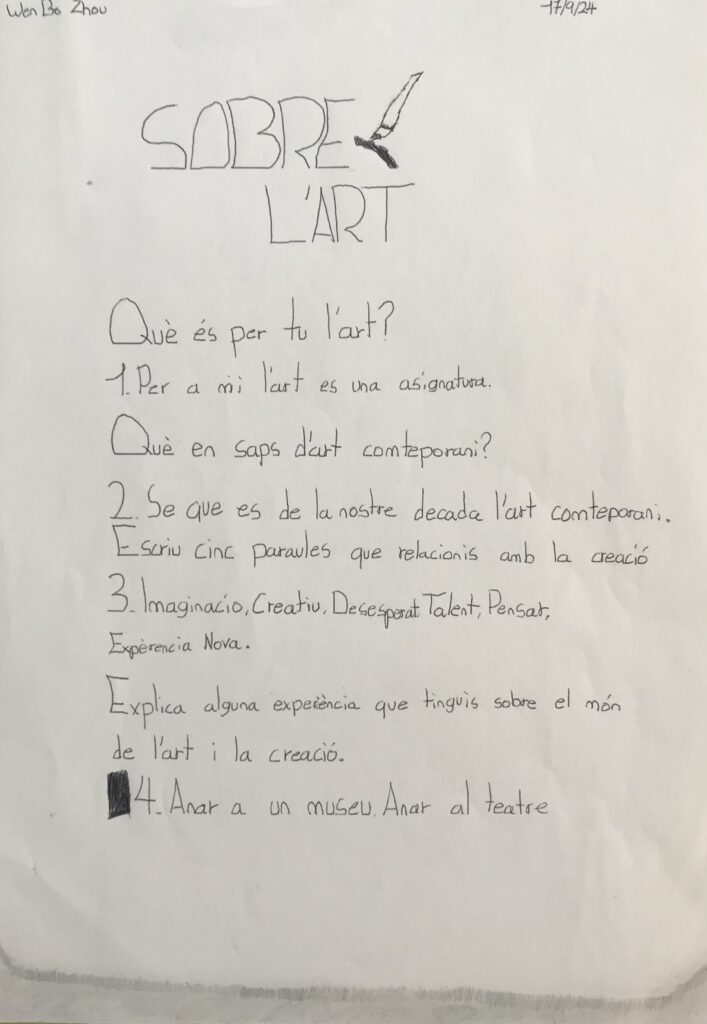 Wen Bo Zhou
17/9/24
SOBRE
L'ART
Què és per tu l'art?
1. Per a mi l'art es una asignatura.
Què en saps d'art comteporani?
2. Se que es de la nostre decada l'art comteporani.
Escriu cinc paraules que relacionis amb la creació
3. Imaginacio, Creatiu, Desesperat Talent, Pensar,
Expèrencia Nova.
Explica alguna experiència que tinguis sobre el món
de l'art i la creació.
4. Anar a un museu. Anar al teatre